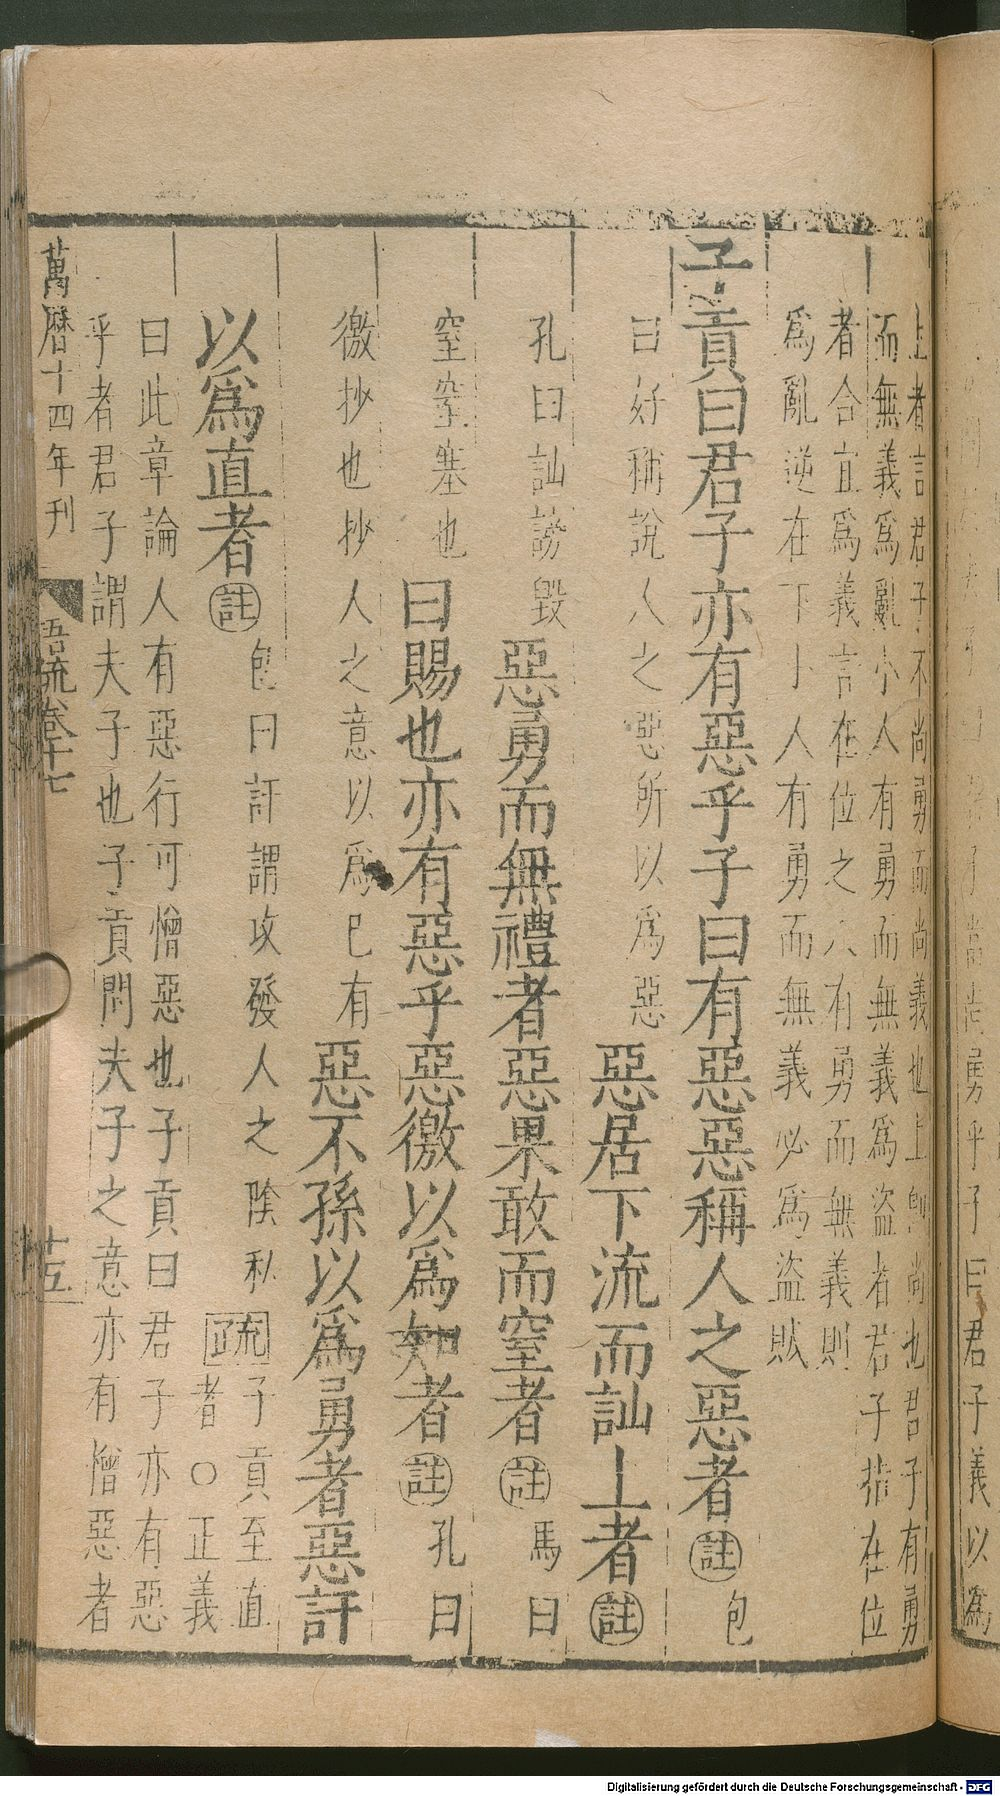 上者言君子不尚勇而尚義也上即尚也君子有勇
而無義爲亂小人有勇而無義爲盜者君子指在位
者合宜爲義言在位之人有勇而無義則
爲亂逆在下小人有勇而無義必爲盜賊
子貢曰君子亦有惡乎子曰有惡惡稱人之惡者註包
曰好稱說人之惡所以爲惡
惡居下流而訕上者註
孔曰訕謗毀
惡勇而無禮者惡果敢而窒者註馬曰
窒窒塞也
曰賜也亦有惡乎惡徼以爲知者註孔曰
徼抄也抄人之意以爲已有
惡不孫以爲勇者惡訐
以爲直者註包曰訐謂攻發人之陰私
疏子貢至直
正者○正義
曰此章論人有惡行可憎惡也子貢曰君子亦有惡
乎者君子謂夫子也子貢問夫子之意亦有憎惡者
萬曆十四年刊
吾流卷十七
十五
勇乎子曰君子義以爲
Digitalisierung gefördert durch die Deutsche Forschungsgemeinschaft - DFG